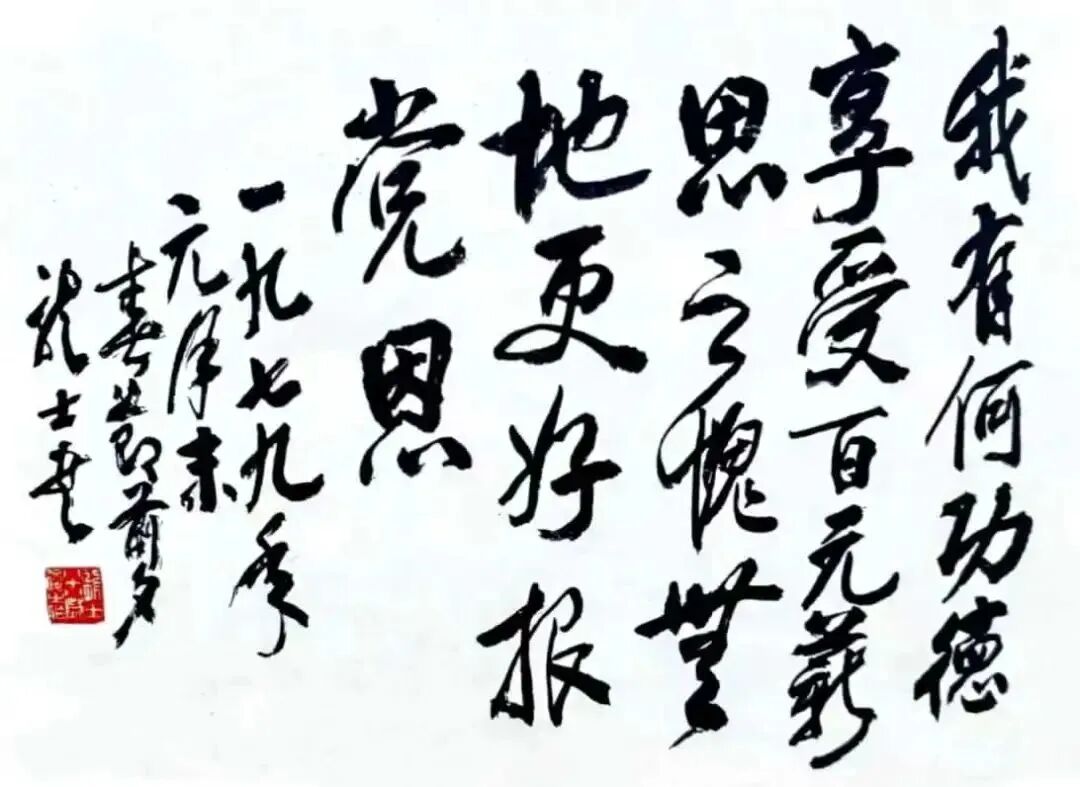 我有何功德
享受百元薪
思之愧無
地更好报
党恩
一九七九年
元月末
春节前夕
龙士尧